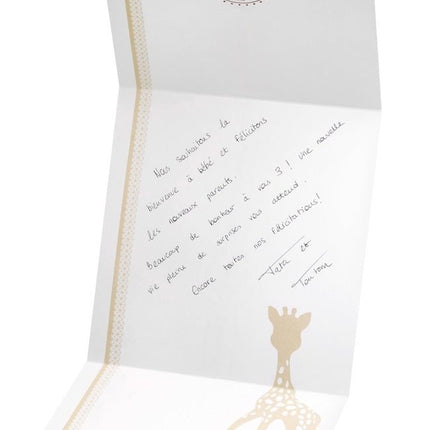 Nous souhaitons la
bienvenue à bébé et félicitons
les nouveaux parents.
Beaucoup de bonheur à vous 3 ! une nouvelle
vie pleine de surprises vous attend.
Encore toutes nos félicitations !
Tata et
Tonton